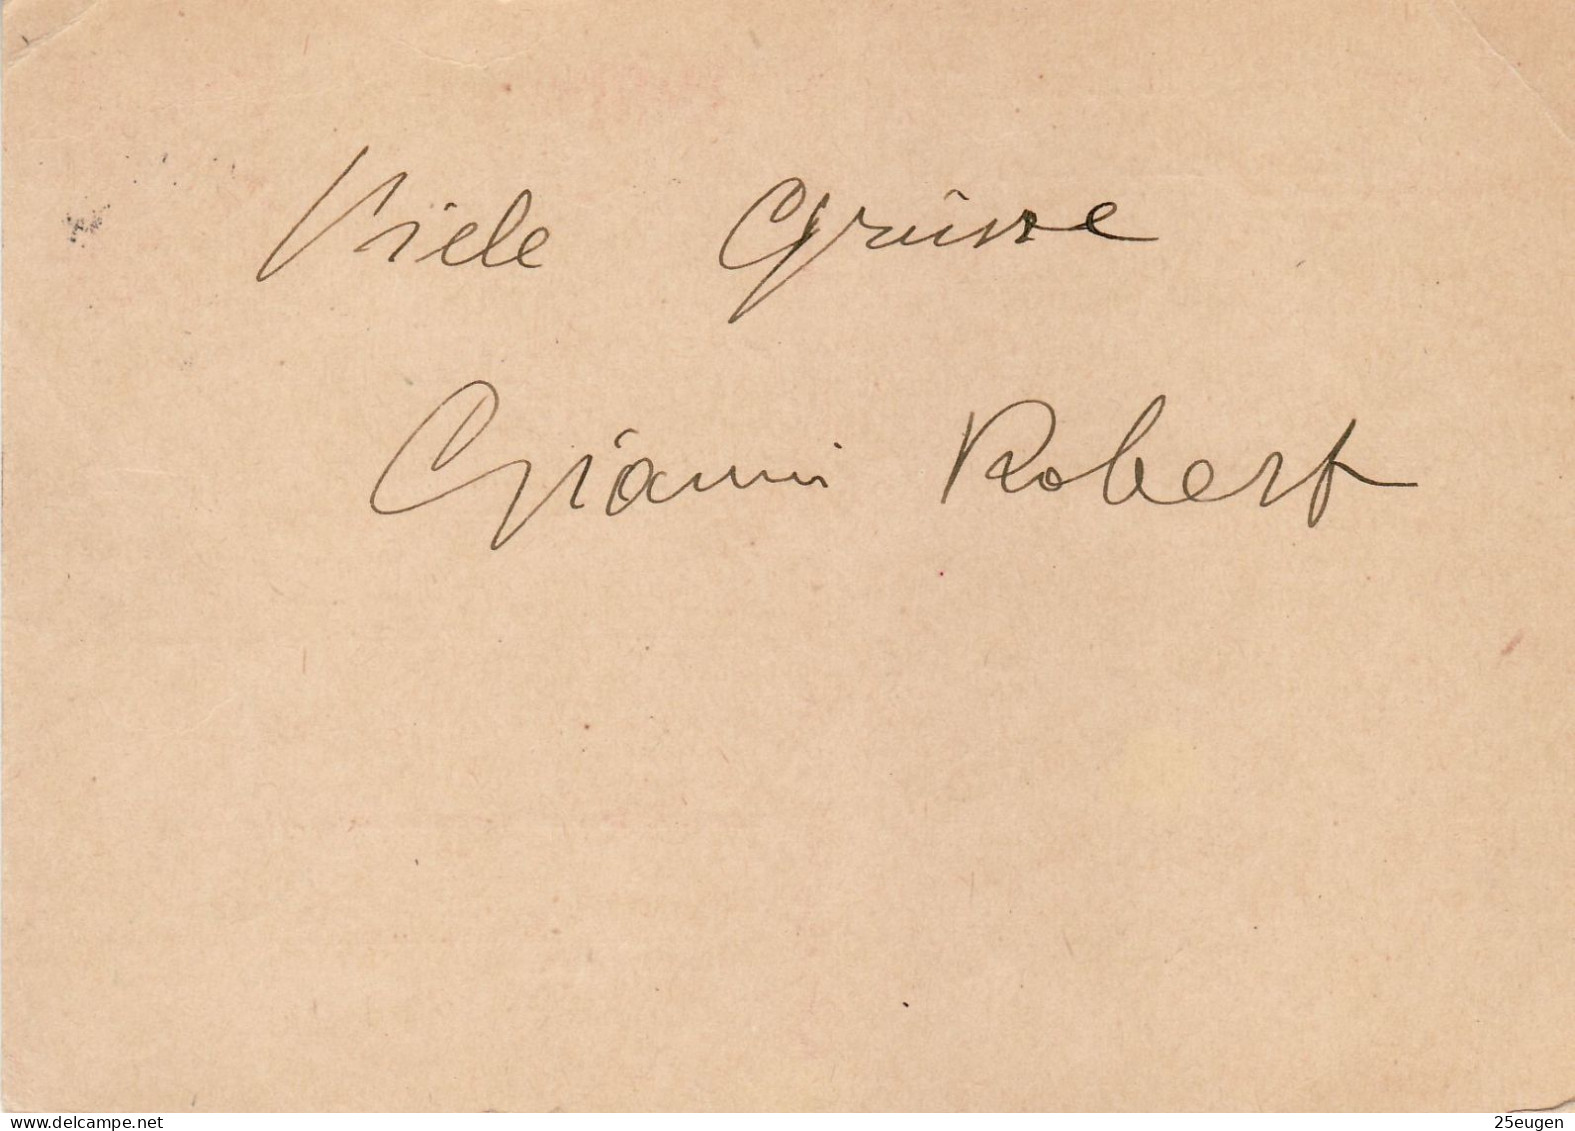 Viele Grüsse
Gianni Robert
delcampe.net
25eugen